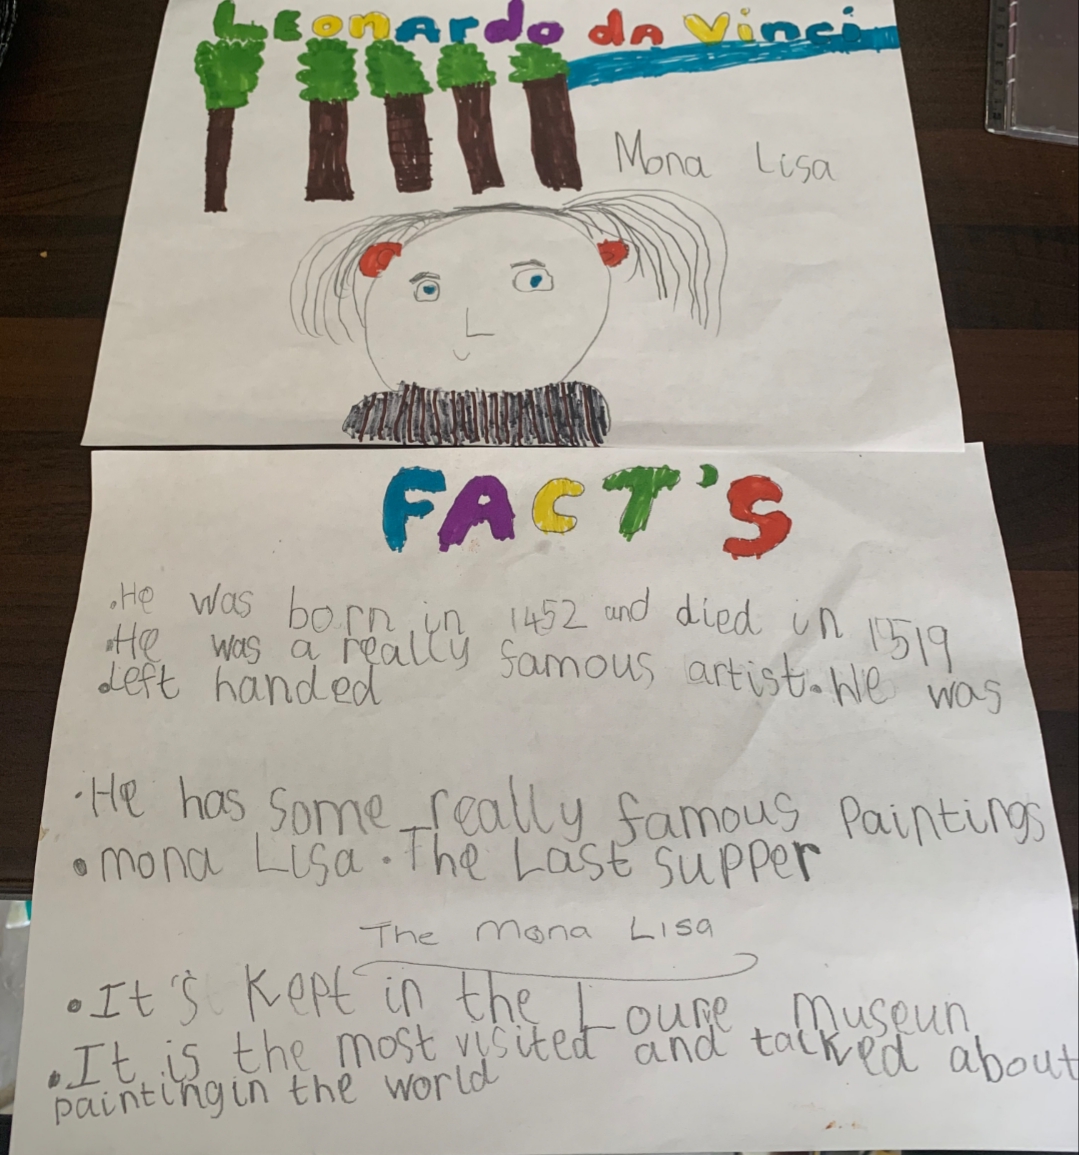 Leonardo da Vinci
Mona Lisa
FACT'S
.He was born in 1452 and died in 1519
.He was a really famous artist.He was
.Left handed
.He has some really famous Paintings
.mona Lisa .The Last supper
The Mona Lisa
.It's kept in the Louve museun
.It is the most visited and talked about
painting in the world